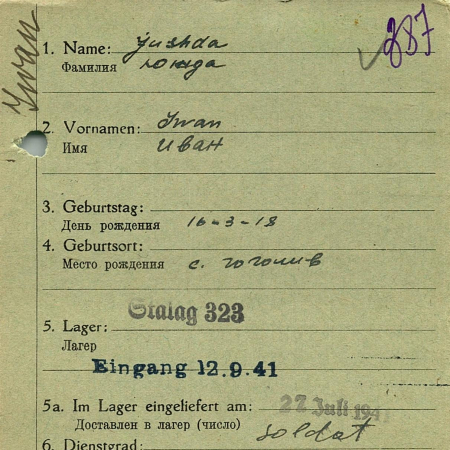 Iwan
287
1. Name: Jushda
Фамилия Южда
2. Vornamen: Iwan
Имя Иван
3. Geburtstag:
День рождения 16-3-18
4. Geburtsort:
Место рождения с. гоголив
Stalag 323
5. Lager:
Лагер
Eingang 12.9.41
5a. Im Lager eingeliefert am: 27 Juli 194
Доставлен в лагер (число)
soldat
6. Dienstgrad: